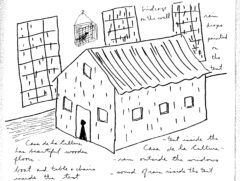 birdcage
on the wall
rain
drops
painted
on
the
tent
Casa de la Cultura
has beautiful wooden
floor
boat and table & chairs
inside the tent
- tent inside the
Casa de la Cultura -
- rain outside the windows
- sound of rain inside the tent